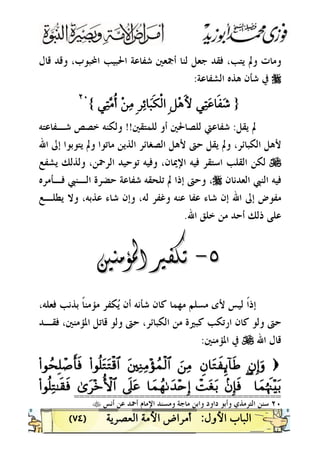 فوزي محمد أبوزيد
أمراض الأمة وبصيرة النبوة
ومات ولم يتب، فقد جعل لنا أجمعين شفاعة الحبيب المحبوب، وقد قال
ﷺ في شأن هذه الشفاعة:
{ شَفَاعَتِي لأَهْلِ الْكَبَائِرِ مِنْ أُمَّتِي }٢٠
لم يقل: شفاعتي للصالحين أو للمتقين!! ولكنه خصص شـــفاعته
لأهل الكبائر، ولم يقل حتى لأهل الصغائر الذين ماتوا ولم يتوبوا إلى الله
ﷺ لكن القلب استقر فيه الإيمان، وفيه توحيد الرحمن، ولذلك يشفع
فيه النبي العدنان ﷺ، وحتى إذا لم تلحقه شفاعة حضرة الـــنبي فـــأمره
مفوض إلى الله إن شاء عفا عنه وغفر له، وإن شاء عذبه، ولا يطلـــع
على ذلك أحد من خلق الله.
٥- تكفير المؤمنين
إذاً ليس لأى مسلم مهما كان شأنه أن يُكفر مؤمناً بذنب فعله،
حتى ولو كان ارتكب كبيرة من الكبائر، حتى ولو قاتل المؤمنين، فقـــد
قال الله ﷻ في المؤمنين:
﴿ وَإِن طَآئِفَتَانِ مِنَ ٱلْمُؤْمِنِينَ ٱقْتَتَلُوا۟ فَأَصْلِحُوا۟
بَيْنَهُمَا ۖ فَإِنۢ بَغَتْ إِحْدَىٰهُمَا عَلَى ٱلْأُخْرَىٰ فَقَـٰتِلُوا۟
٢٠ سنن الترمذي وأبو داود وابن ماجة ومسند الإمام أحمد عن أنس
الباب الأول: أمراض الأمة العصرية (٧٤)